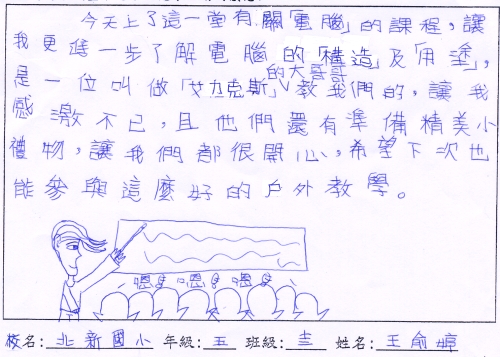 今天上了這一堂有關「電腦」的課程,讓
我更進一步了解電腦的「構造」及「用塗」,
是一位叫做「艾力克斯」的大哥哥教我們的,讓我
感激不已,且他們還有準備精美小
禮物,讓我們都很開心,希望下次也
能參與這麼好的戶外教學。
嗯 嗯 嗯
校名:北新國小 年級:五 班級: 姓名:王俞婷